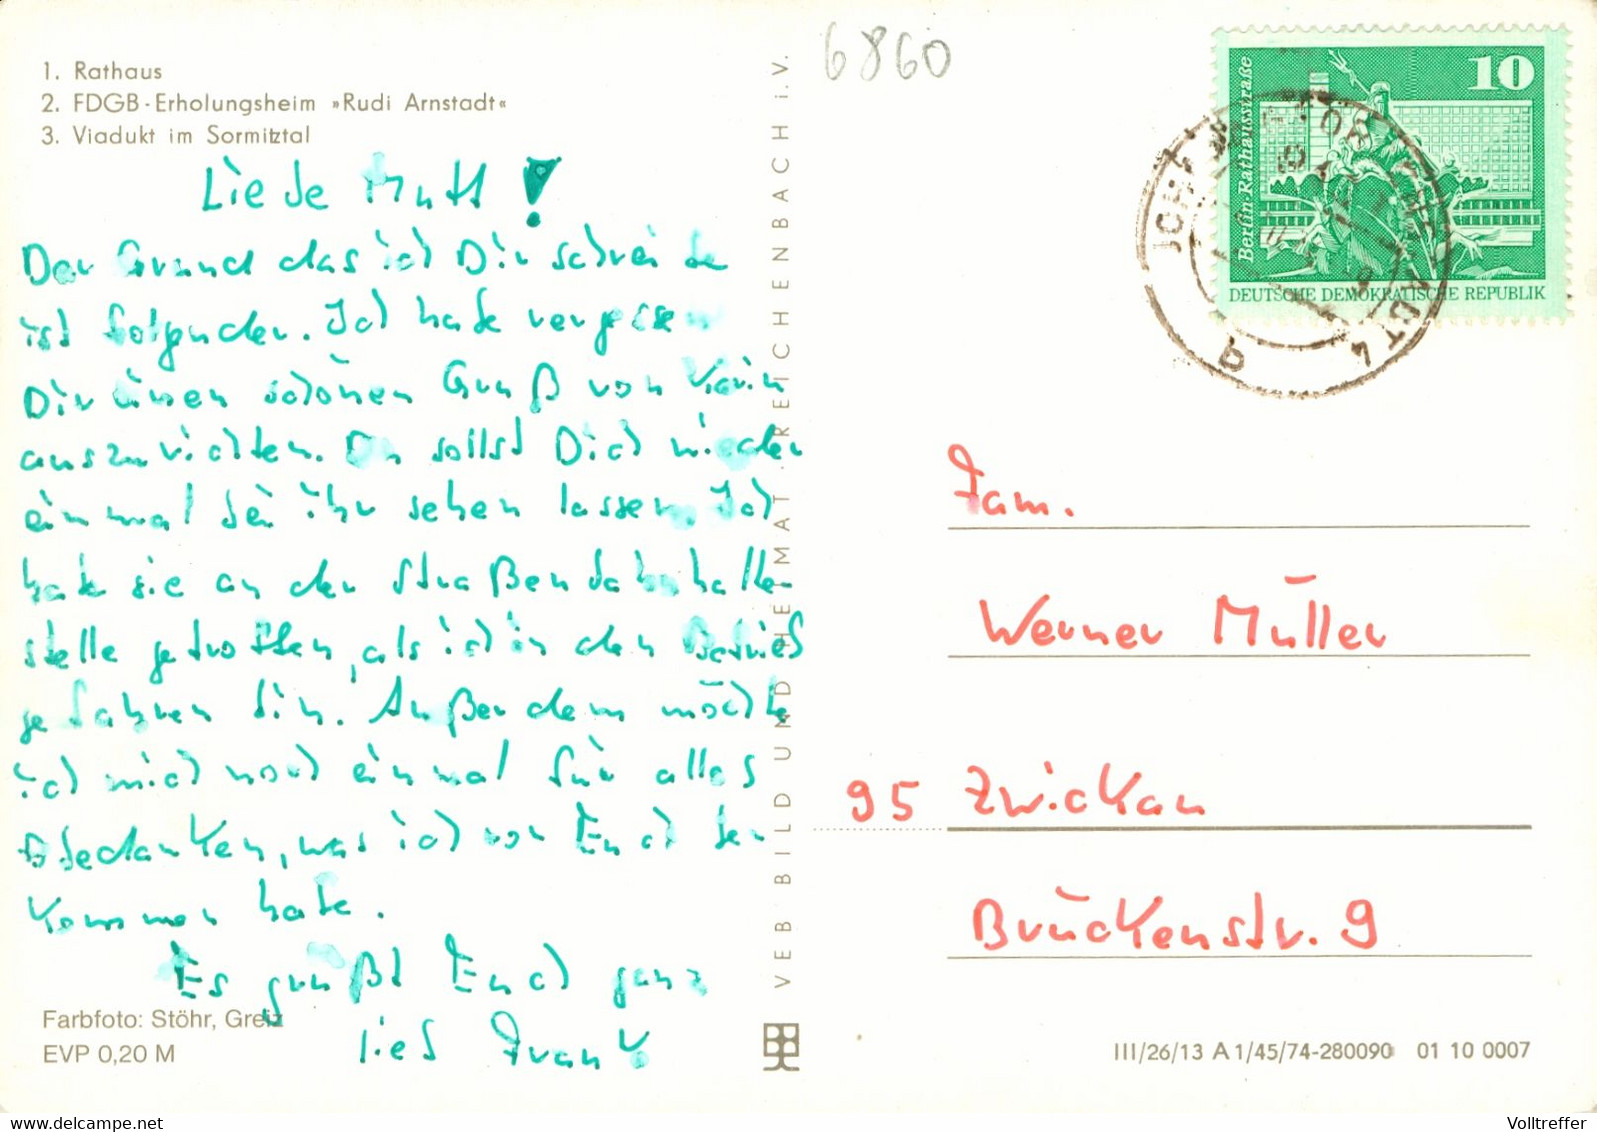 1. Rathaus
2. FDGB-Erholungsheim »Rudi Arnstadt«
3. Viadukt im Sormitztal
Liebe Mutti!
Der Grund das ich Dir schreibe
ist folgender. Ich habe vergessen
Dir einen schönen Gruß von Karin
auszurichten. Du sollst Dich wieder
einmal bei ihr sehen lassen. Ich
habe sie an der Straßenbahnhalte
stelle getroffen, als ich in den Betrieb
gefahren bin. Außerdem möchte
ich mich noch einmal für alles
bedanken, was ich von Euch be
kommen habe.
Es grüßt Euch ganz
lieb Frank
Farbfoto: Stöhr, Greiz
EVP 0,20 M
VEB BILD UND HEIMAT REICHENBACH i. V.
6860
10
Berlin-Rathausstraße
DEUTSCHE DEMOKRATISCHE REPUBLIK
Fam.
Werner Müller
95 Zwickau
Brückenstr. 9
III/26/13 A 1/45/74-280090 01 10 0007
Volltreffer